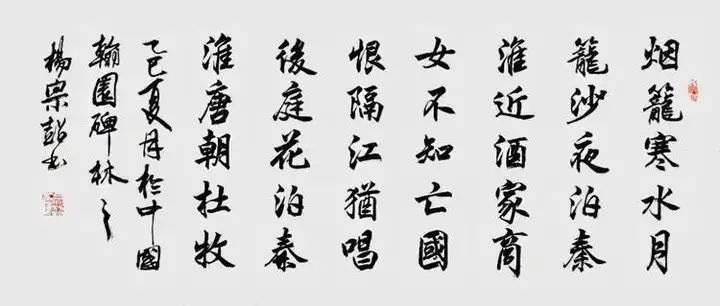 烟籠寒水月
籠沙夜泊秦
淮近酒家商
女不知亡國
恨隔江猶唱
後庭花泊秦
淮唐朝杜牧
乙巳夏月於中國
翰園碑林
楊